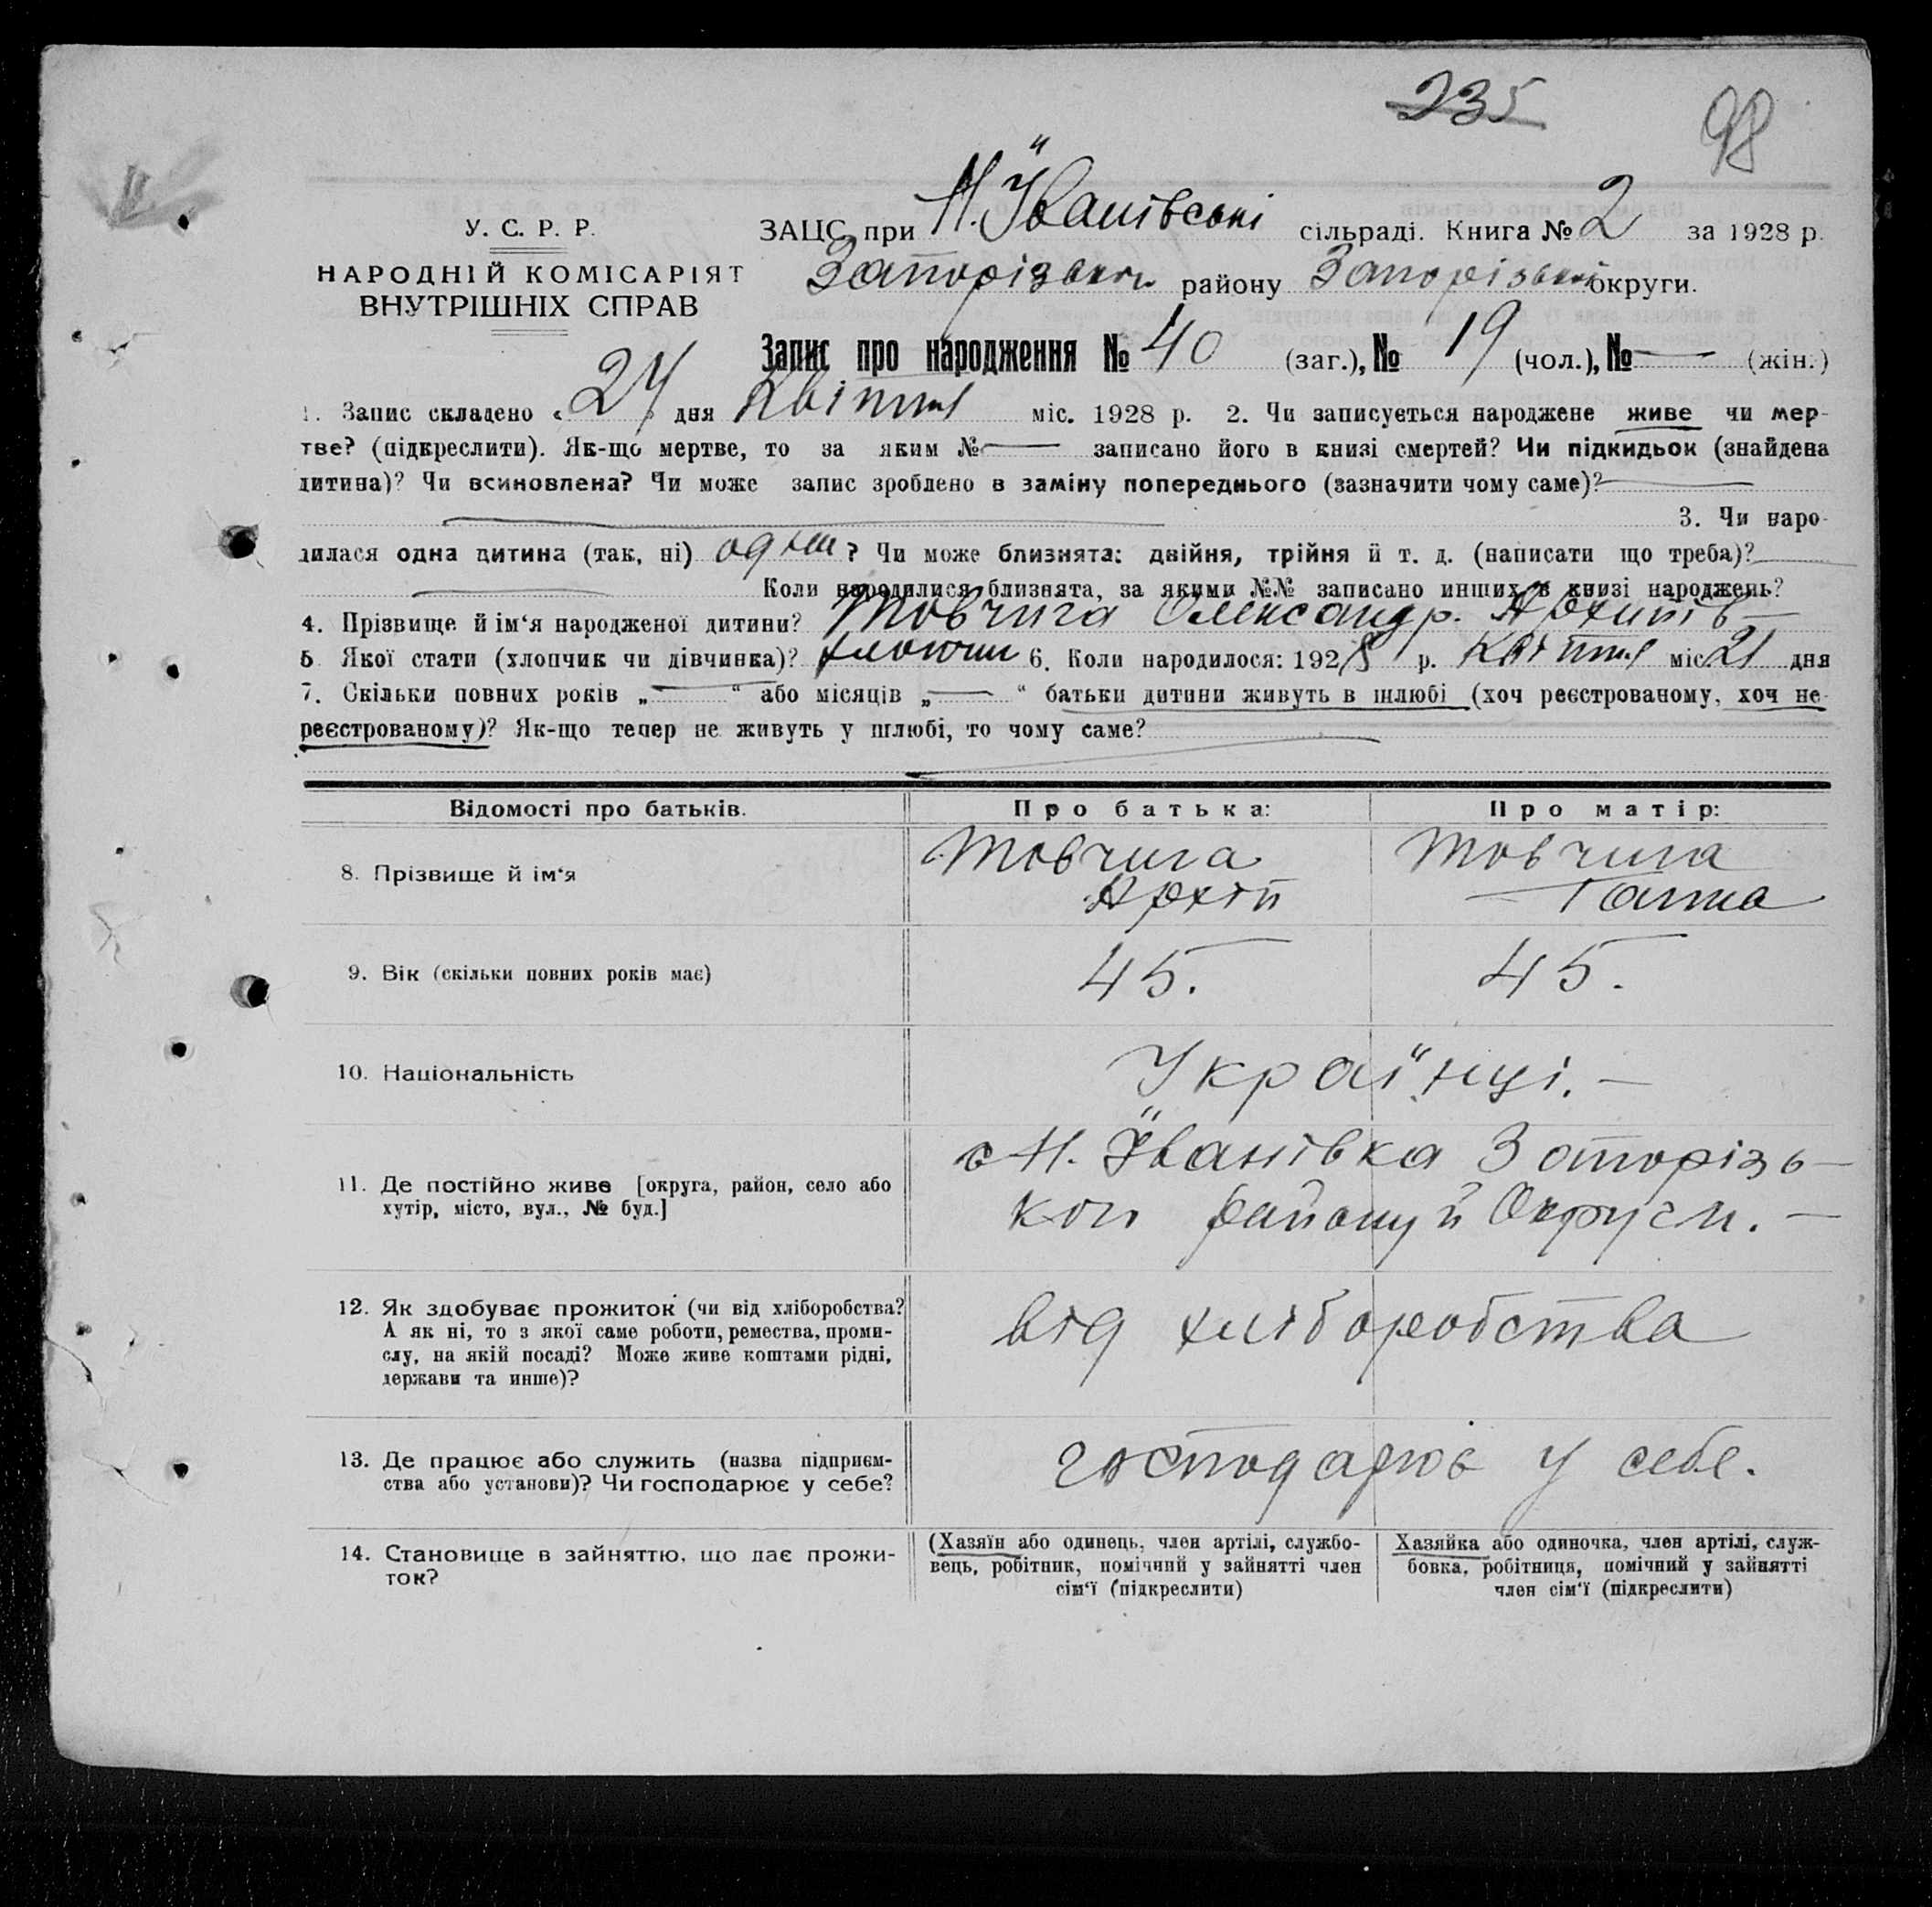 235
98
У. С. Р. Р.
НАРОДНІЙ КОМІСАРІЯТ
ВНУТРІШНІХ СПРАВ
ЗАЦС при Н. Їванівські сільраді. Книга № 2 за 1928 р.
Запорізького району Запорізької округи.
Запис про народження № 40 (заг.), № 19 (чол.), № — (жін.)
1. Запис складено « 24 » дня Квітня міс. 1928 р. 2. Чи записується народжене живе чи мер-
тве? (підкреслити). Як-що мертве, то за яким № — записано його в книзі смертей? Чи підкидьок (знайдена
дитина)? Чи всиновлена? Чи може запис зроблено в заміну попереднього (зазначити чому саме)? —
— 3. Чи наро-
дилася одна дитина (так, ні) одна ? Чи може близнята: двійня, трійня й т. д. (написати що треба)? —
— Коли народилися близнята, за якими №№ записано инших в книзі народжень?
4. Прізвище й ім‘я народженої дитини? Товчига Олександр. Архипів —
5 Якої стати (хлопчик чи дівчинка)? хлопчик 6. Коли народилося: 1928 р. Квітня міс. 21 дня
7. Скільки повних років „ — “ або місяців „ — “ батьки дитини живуть в шлюбі (хоч реєстрованому, хоч не-
реєстрованому)? Як-що тепер не живуть у шлюбі, то чому саме? —
Відомості про батьків. Про батька: Про матір:
8. Прізвище й ім‘я Товчига Товчига
Архіп — Ганна
9. Вік (скільки повних років має) 45. 45.
10. Національність Українці. —
11. Де постійно живе [округа, район, село або
хутір, місто, вул., № буд.]
с Н. Їванівка Запорізь-
кого району й Округи. —
12. Як здобуває прожиток (чи від хліборобства?
А як ні, то з якої саме роботи, ремества, проми-
слу, на якій посаді? Може живе коштами рідні,
держави та инше)?
від хліборобства
13. Де працює або служить (назва підприєм-
ства або установи)? Чи господарює у себе?
господарює у себе.
14. Становище в зайняттю, що дає прожи-
ток?
(Хазяїн або одинець, член артілі, службо-
вець, робітник, помічний у зайнятті член
сім‘ї (підкреслити)
Хазяйка або одиночка, член артілі, служ-
бовка, робітниця, помічний у зайнятті
член сім‘ї (підкреслити)